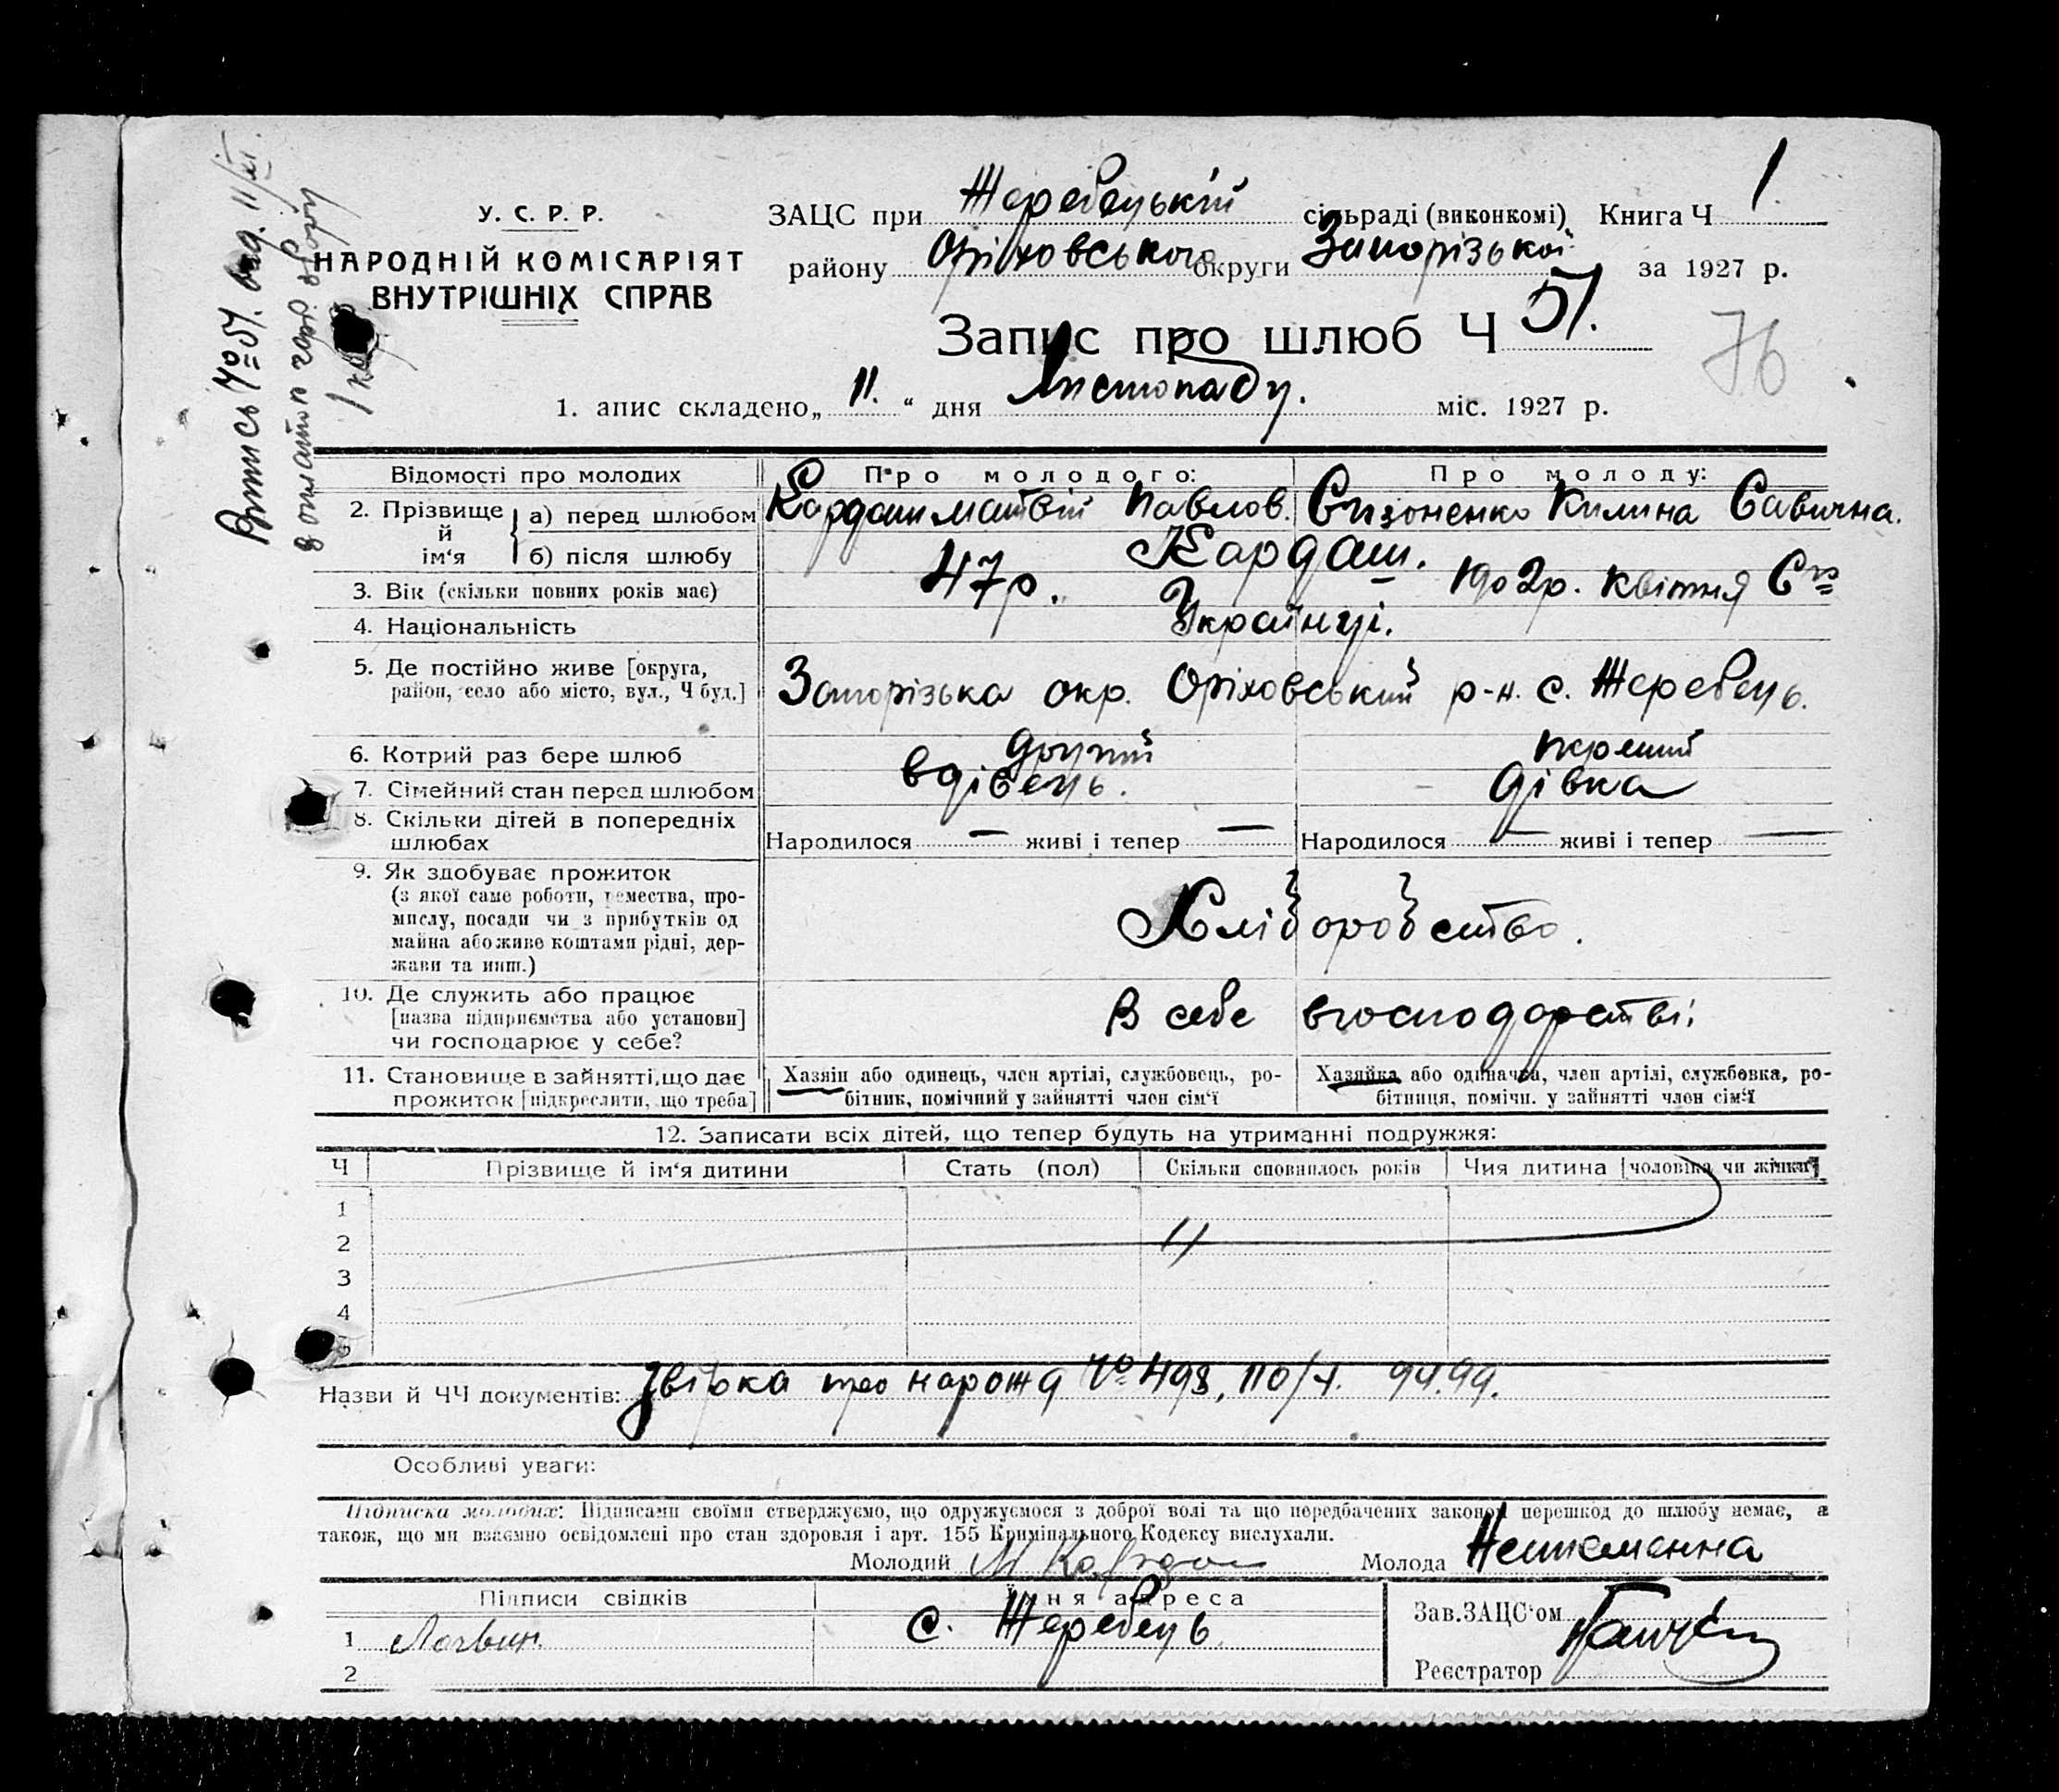 Жеребецькій
У. С. Р. Р.
ЗАЦС при сільраді (виконкомі) Книга Ч 1.
НАРОДНІЙ КОМІСАРІЯТ
району Оріховського округи Запорізької за 1927 р.
ВНУТРІШНІХ СПРАВ
Запис про шлюб Ч 51.
76
1. апис складено „ 11. “ дня Листопаду. міс. 1927 р.
Відомості про молодих
Про молодого:
Про молоду:
2. Прізвище й ім'я
а) перед шлюбом
Кардаш Матвій Павлов.
Сизоненко Килина Савична.
б) після шлюбу
Кардаш.
3. Вік (скільки повних років має)
47 р.
1902 р. квітня
4. Національність
Українці.
5. Де постійно живе [округа,
район, село або місто, вул., Ч буд.]
Запорізька окр. Оріховський р-н. с. Жеребець.
6. Котрий раз бере шлюб
другий
перший
7. Сімейний стан перед шлюбом
вдівець.
дівка
8. Скільки дітей в попередніх
шлюбах
Народилося — живі і тепер —
Народилося — живі і тепер —
9. Як здобуває прожиток
(з якої саме роботи, ремества, про-
мислу, посади чи з прибутків од
майна або живе коштами рідні, дер-
жави та инш.)
Хліборобство.
10. Де служить або працює
[назва підприємства або установи]
чи господарює у себе?
В себе в господарстві.
11. Становище в зайнятті, що дає
прожиток [підкреслити, що треба]
Хазяін або одинець, член артілі, службовець, ро-
бітник, помічний у зайнятті член сім'ї
Хазяйка або одиначка, член артілі, службовка, ро-
бітниця, помічн. у зайнятті член сім'ї
12. Записати всіх дітей, що тепер будуть на утриманні подружжя:
Ч
Прізвище й ім'я дитини
Стать (пол)
Скільки сповнилось років
Чия дитина [чоловіка чи жінки]
1
2
3
4
5
Назви й ЧЧ документів: про нарожд № 498,
Особливі уваги:
Підписка молодих: Підписами своїми стверджуємо, що одружуємося з доброї волі та що передбачених законом перешкод до шлюбу немає, а
також, що ми взаємно освідомлені про стан здоровля і арт. 155 Кримінального Кодексу вислухали.
Молодий М Кардаш
Молода Неписменна
Підписи свідків
їхня адреса
Зав. ЗАЦС'ом
1 Логвин
с. Жеребець
2
Реєстратор